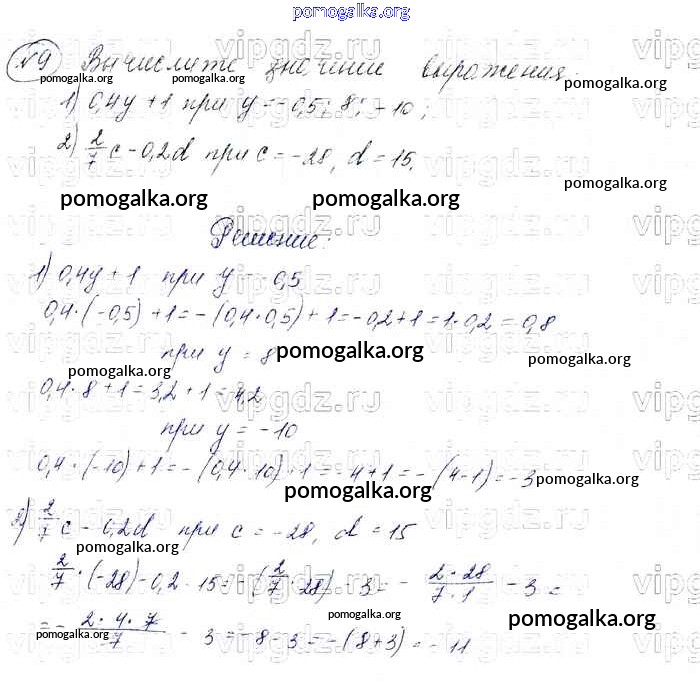 pomogalka.org
№9 Вычислите значение выражения:
pomogalka.org pomogalka.org pomogalka.org
1) 0,4y + 1 при y = -0,5; 8; -10;
2) 2/7 c - 0,2d при c = -28, d = 15.
pomogalka.org
pomogalka.org pomogalka.org
Решение:
1) 0,4y + 1 при y = 0,5
0,4 · (-0,5) + 1 = -(0,4 · 0,5) + 1 = -0,2 + 1 = 1 - 0,2 = 0,8
при y = 8
pomogalka.org pomogalka.org
pomogalka.org
0,4 · 8 + 1 = 3,2 + 1 = 4,2
при y = -10
0,4 · (-10) + 1 = -(0,4 · 10) + 1 = -4 + 1 = -(4-1) = -3
pomogalka.org pomogalka.org
2) 2/7 c - 0,2d при c = -28, d = 15
pomogalka.org
2/7 · (-28) - 0,2 · 15 = -(2/7 · 28) - 3 = - 2 · 28/7 · 1 - 3 =
pomogalka.org pomogalka.org
= - 2 · 4 · 7/7 - 3 = -8 - 3 = -(8+3) = -11
pomogalka.org pomogalka.org
vipgdz.ru